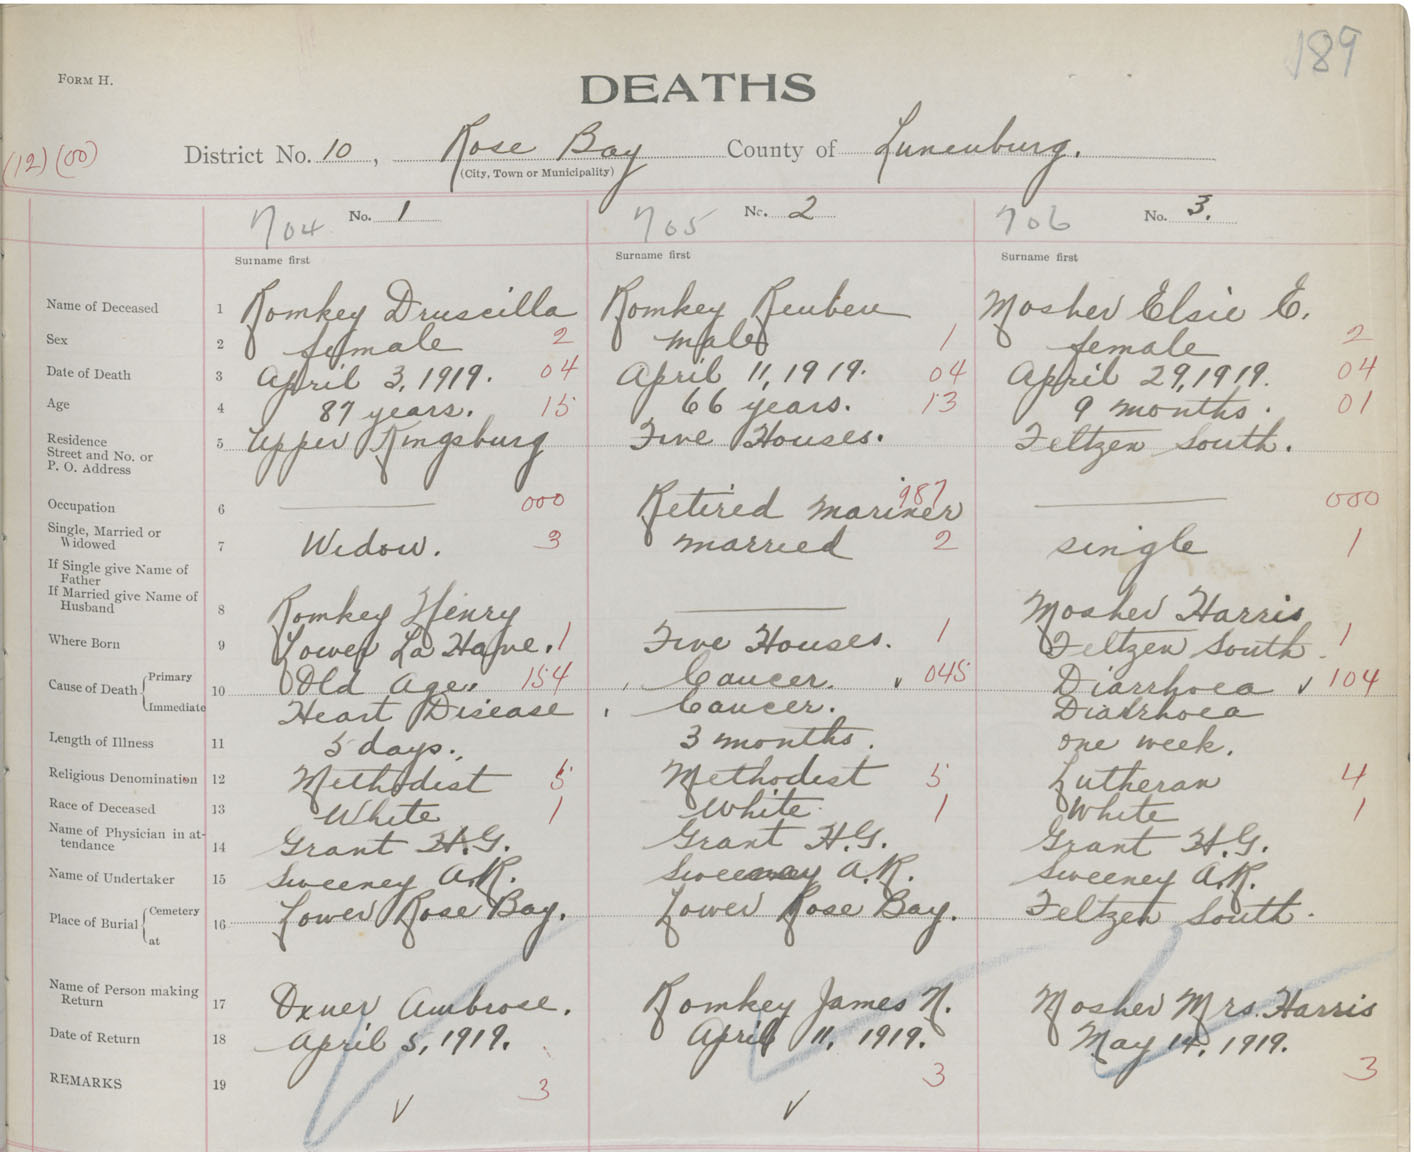 189
FORM H.
DEATHS
(12) (00)
District No. 10, Rose Bay County of Lunenburg.
(City, Town or Municipality)
704 No. 1 705 No. 2 706 No. 3.
Surname first Surname first Surname first
Name of Deceased 1 Romkey Druscilla Romkey Reuben Mosher Elsie E.
Sex 2 female 2 male 1 female 2
Date of Death 3 April 3, 1919. 04 April 11, 1919. 04 April 29, 1919. 04
Age 4 87 years. 15 66 years. 13 9 months. 01
Residence
Street and No. or
P. O. Address 5 Upper Kingsburg Five Houses. Feltzen South.
Occupation 6 000 Retired mariner 987 000
Single, Married or
Widowed 7 Widow. 3 married 2 single 1
If Single give Name of
Father
If Married give Name of
Husband 8 Romkey Henry Mosher Harris
Where Born 9 Lower La Have. 1 Five Houses. 1 Feltzen South. 1
Cause of Death Primary 10 Old Age. 154 Cancer. 045 Diarrhoea 104
Immediate Heart Disease Cancer. Diarrhoea
Length of Illness 11 5 days. 3 months. one week.
Religious Denomination 12 Methodist 5 Methodist 5 Lutheran 4
Race of Deceased 13 White 1 White 1 White 1
Name of Physician in at-
tendance 14 Grant H.G. Grant H.G. Grant H.G.
Name of Undertaker 15 Sweeney A.R. Sweeney A.R. Sweeney A.R.
Place of Burial Cemetery
at 16 Lower Rose Bay. Lower Rose Bay. Feltzen South.
Name of Person making
Return 17 Oxner Ambrose. Romkey James N. Mosher Mrs. Harris
Date of Return 18 April 5, 1919. April 11, 1919. May 14, 1919.
REMARKS 19 3 3 3